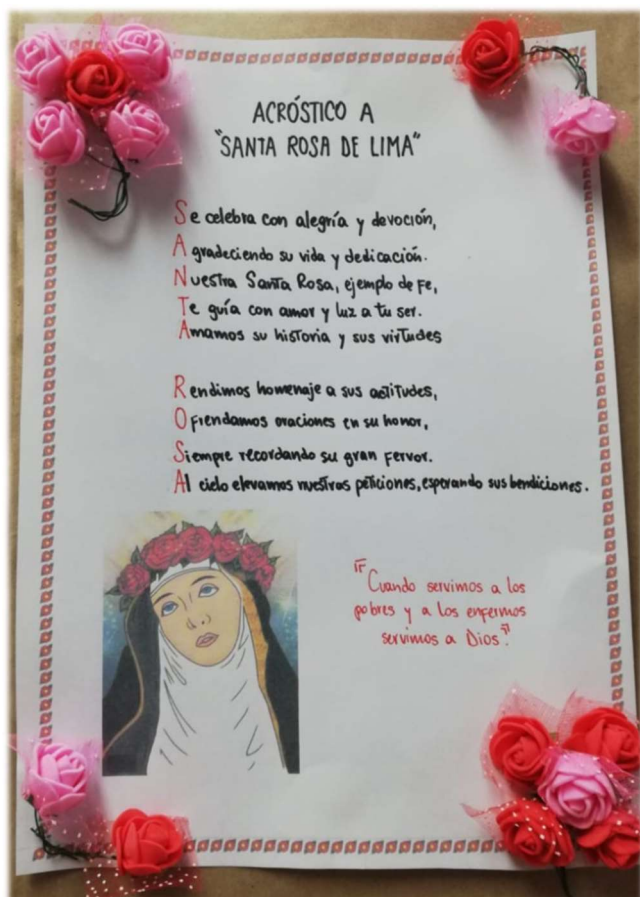 ACRÓSTICO A
"SANTA ROSA DE LIMA"
Se celebra con alegría y devoción,
Agradeciendo su vida y dedicación.
Nuestra Santa Rosa, ejemplo de Fe,
Te guía con amor y luz a tu ser.
Amamos su historia y sus virtudes
Rendimos homenaje a sus actitudes,
Ofrendamos oraciones en su honor,
Siempre recordando su gran fervor.
Al cielo elevamos nuestras peticiones, esperando sus bendiciones.
"Cuando servimos a los
pobres y a los enfermos
servimos a Dios."